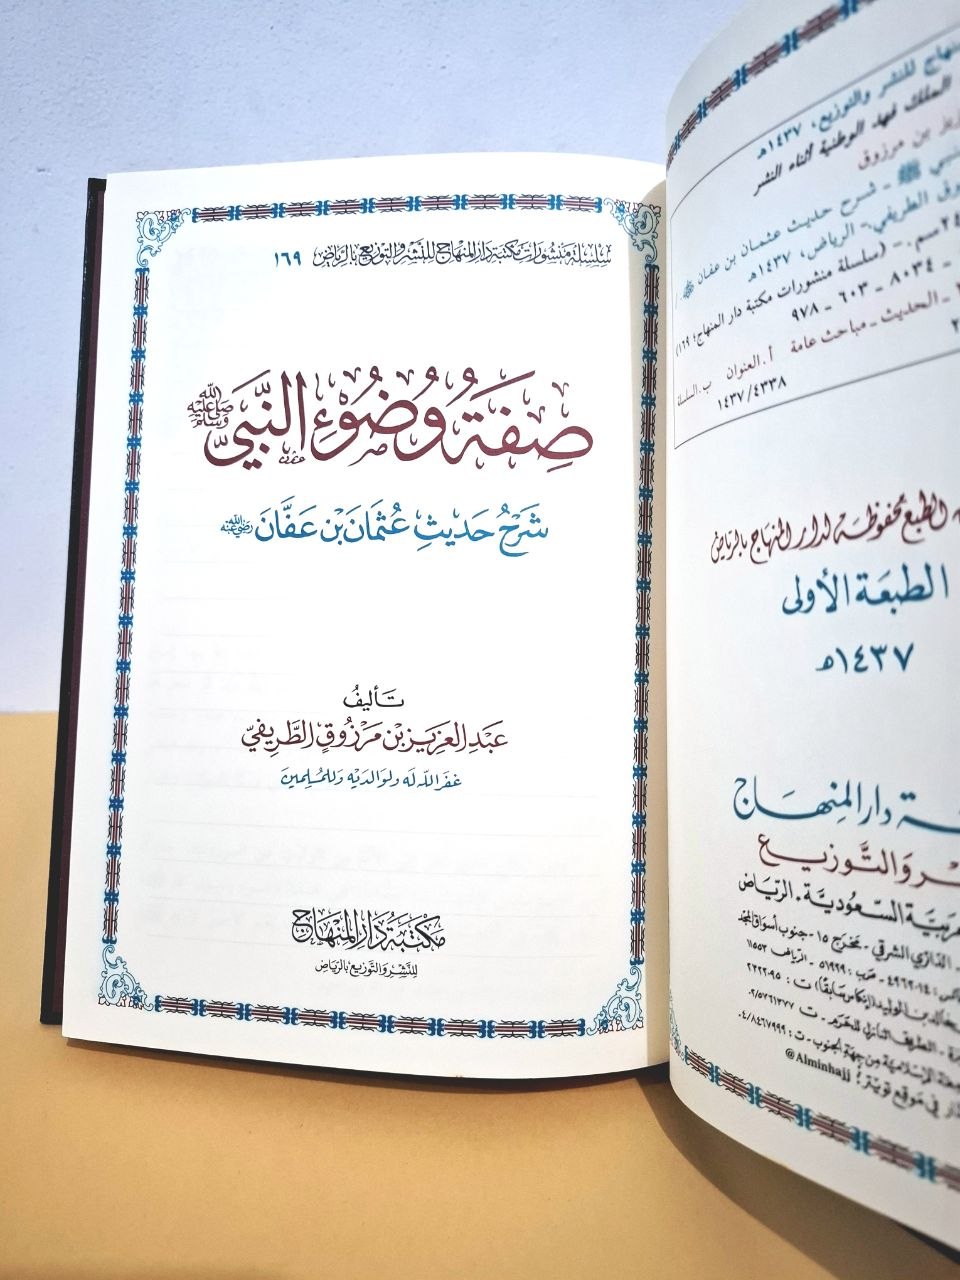 سلسلة منشورات مكتبة دار المنهاج للنشر والتوزيع بالرياض ١٦٩
صِفَةُ وُضُوْءِ النَّبِيِّ ﷺ
شَرْحُ حَدِيثِ عُثْمَانَ بْنِ عَفَّانَ رضي الله عنه
تَأليفُ
عَبْدِ العَزِيزِ بْنِ مَرْزُوْقٍ الطَّرِيفِيّ
غفر الله له ولوالديه وللمسلمين
مكتبة دار المنهاج
للنشر والتوزيع بالرياض
للنشر والتوزيع، ١٤٣٧هـ
الملك فهد الوطنية أثناء النشر
بن مرزوق
ﷺ - شرح حديث عثمان بن عفان رضي الله عنه /
الطريفي - الرياض، ١٤٣٧هـ
٢٤سم. - (سلسلة منشورات مكتبة دار المنهاج؛ ١٦٩)
٨٠٣٤ - ٦٠٣ - ٩٧٨
- الحديث - مباحث عامة أ. العنوان ب. السلسلة
١٤٣٧/٤٣٣٨
الطبع محفوظة لدار المنهاج بالرياض
الطبعَة الأولى
١٤٣٧هـ
دار المِنهَاج
وَالتَّوزيع
السّعوديّة . الرّيَاض
الدائري الشرقي - مخرج ١٥ - جنوب أسواق المجد
ص.ب: ٥١٩٢٩ - الرياض ١١٥٥٣
الطريق النازل للحرم - ت ٠٢/٥٧٦١٣٧٧
الإسلامية من جهة الجنوب - ت: ٠٤/٨٤٦٧٩٩٩
في موقع تويتر: @Alminhajj